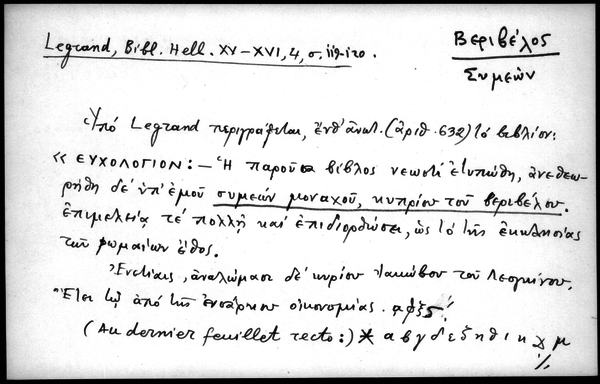 Legrand, Bibl. Hell. XV–XVI, 4, σ. 119-120.
Βεριβέλος
Συμεών
Ὑπό Legrand περιγράφεται, ἔνθ' ἀνωτ. (ἀριθ. 632) τό βιβλίον:
« ΕΥΧΟΛΟΓΙΟΝ: – Ἡ παροῦσα βίβλος νεωστί ἐτυπώθη, ἀνεθεω-
ρήθη δέ ὑπ' ἐμοῦ συμεών μοναχοῦ, κυπρίου τοῦ βεριβέλου.
ἐπιμελείᾳ τέ πολλῇ καί ἐπιδιορθώσει, ὡς τό τῆς ἐκκλησίας
τῶν ῥωμαίων ἔθος.
Ἐνετίαις, ἀναλώμασι δέ κυρίου Ἰακώβου τοῦ Λεογκίνου,
Ἔτει τῷ ἀπό τῆς ἐνσάρκου οἰκονομίας. αφξς'
(Au dernier feuillet recto:) * α β γ δ ε ξ η θ ι κ χ μ